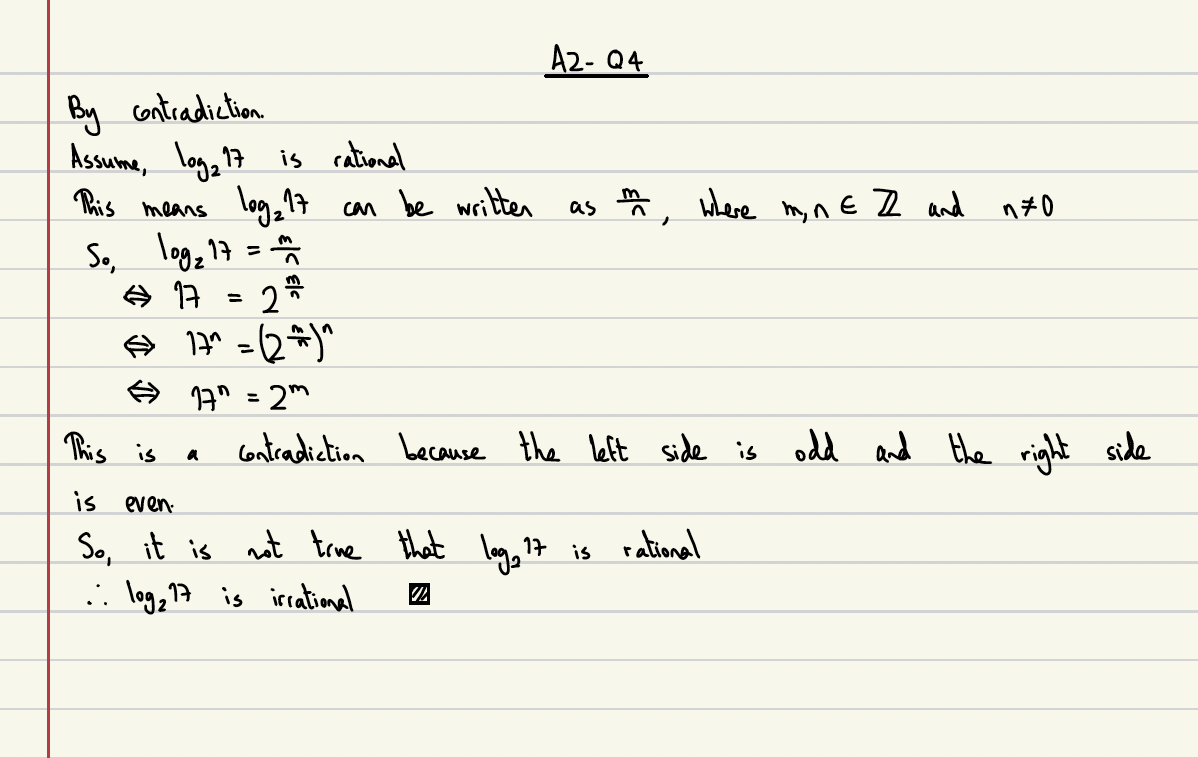 A2- Q4
By contradiction.
Assume, log₂17 is rational
This means log₂17 can be written as m/n, where m,n ∈ ℤ and n≠0
So, log₂17 = m/n
⇔ 17 = 2^(m/n)
⇔ 17ⁿ = (2^(m/n))ⁿ
⇔ 17ⁿ = 2ᵐ
This is a contradiction because the left side is odd and the right side
is even.
So, it is not true that log₂17 is rational
∴ log₂17 is irrational